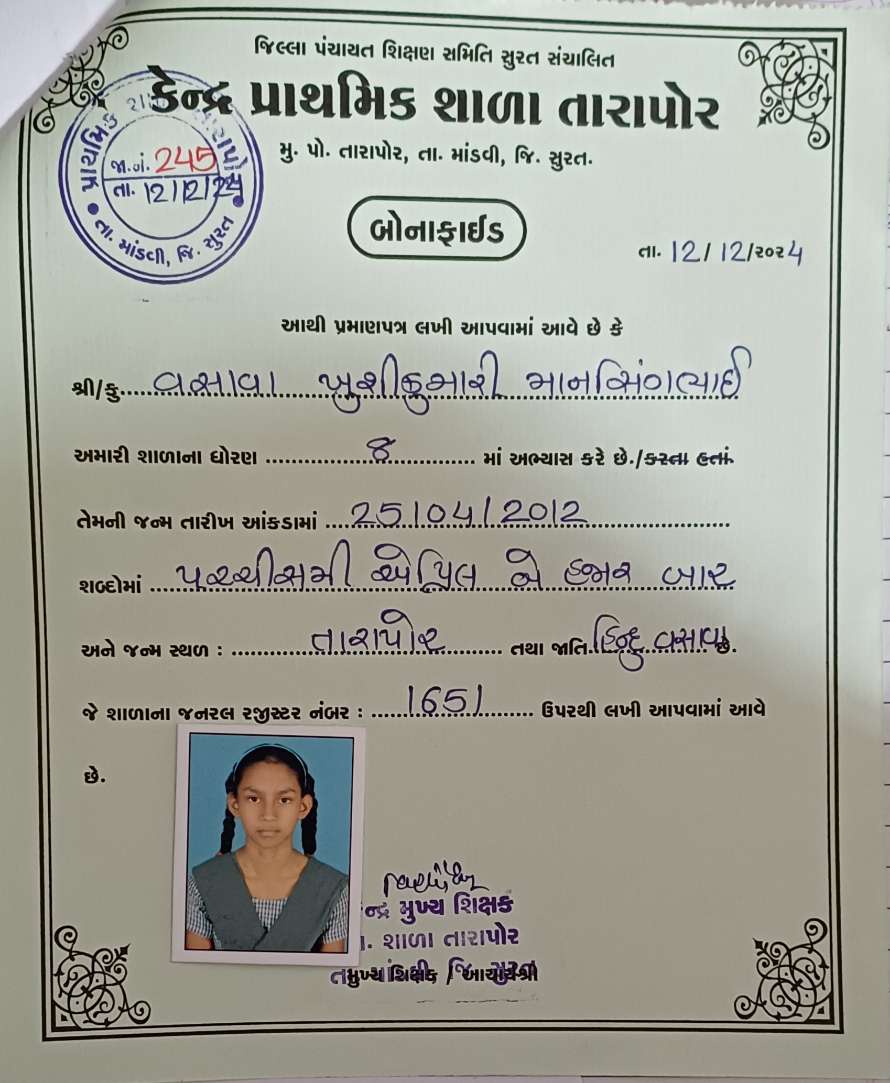 જિલ્લા પંચાયત શિક્ષણ સમિતિ સુરત સંચાલિત
કેન્દ્ર પ્રાથમિક શાળા તારાપોર
મુ. પો. તારાપોર, તા. માંડવી, જિ. સુરત.
પ્રાથમિક
જા.નં. 245
તા. 12/12/24
તા. માંડવી, જિ. સુરત
બોનાફાઈડ
તા. 12/12/૨૦૨4
આથી પ્રમાણપત્ર લખી આપવામાં આવે છે કે
શ્રી/કુ. વસાવા ખુશીકુમારી માનસિંગભાઈ
અમારી શાળાના ધોરણ 8 માં અભ્યાસ કરે છે./કરતા હતાં.
તેમની જન્મ તારીખ આંકડામાં 25/04/2012
શબ્દોમાં પચ્ચીસમી એપ્રિલ બે હજાર બાર
અને જન્મ સ્થળ : તારાપોર તથા જાતિ. હિન્દુ વસાવા છે.
જે શાળાના જનરલ રજીસ્ટર નંબર : 1651 ઉપરથી લખી આપવામાં આવે
છે.
મુખ્ય શિક્ષક
શાળા તારાપોર
મુખ્ય શિક્ષક / આચાર્યશ્રી